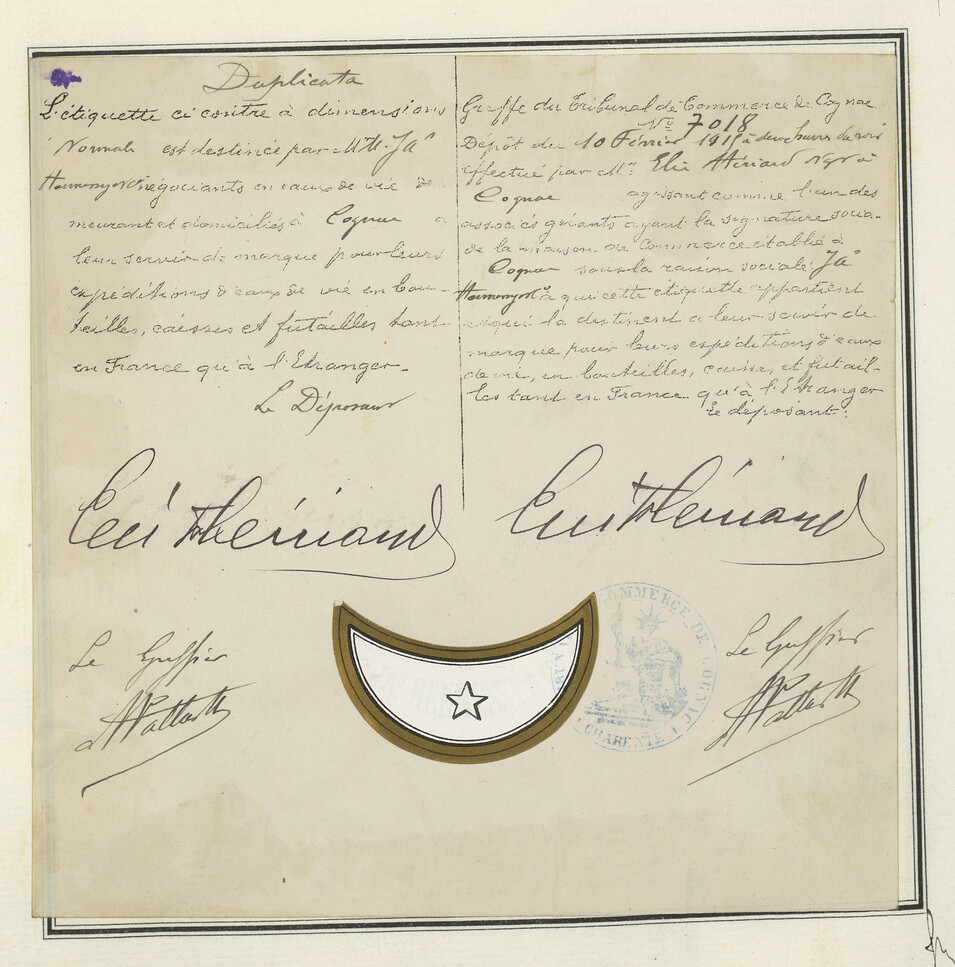 Duplicata
L'étiquette ci contre à dimensions
Normale est destinée par MM. Jas
Hennessy & Co négociants en eaux de vie de-
meurant et domiciliés à Cognac à
leur servir de marque pour leurs
expéditions d'eaux de vie en bou-
teilles, caisses et futailles tant
en France qu'à l'Etranger.
Le Déposant
Greffe du Tribunal de Commerce de Cognac
No 7018
Dépôt du 10 Février à deux heures du soir
effectué par Mr: Elie Hériard Ngt à
Cognac agissant comme l'un des
associés gérants ayant la signature socia-
de la maison de Commerce établie à
Cognac sous la raison sociale: Jas
Hennessy & Co à qui cette étiquette appartient
et qui la destinent a leur servir de
marque pour leurs expéditions d'eaux
de vie, en bouteilles, caisses et futail-
les tant en France qu'à l'Etranger
Le déposant:
Elie Hériard
Elie Hériard
Le Greffier
Le Greffier
COMMERCE DE COGNAC
CHARENTE